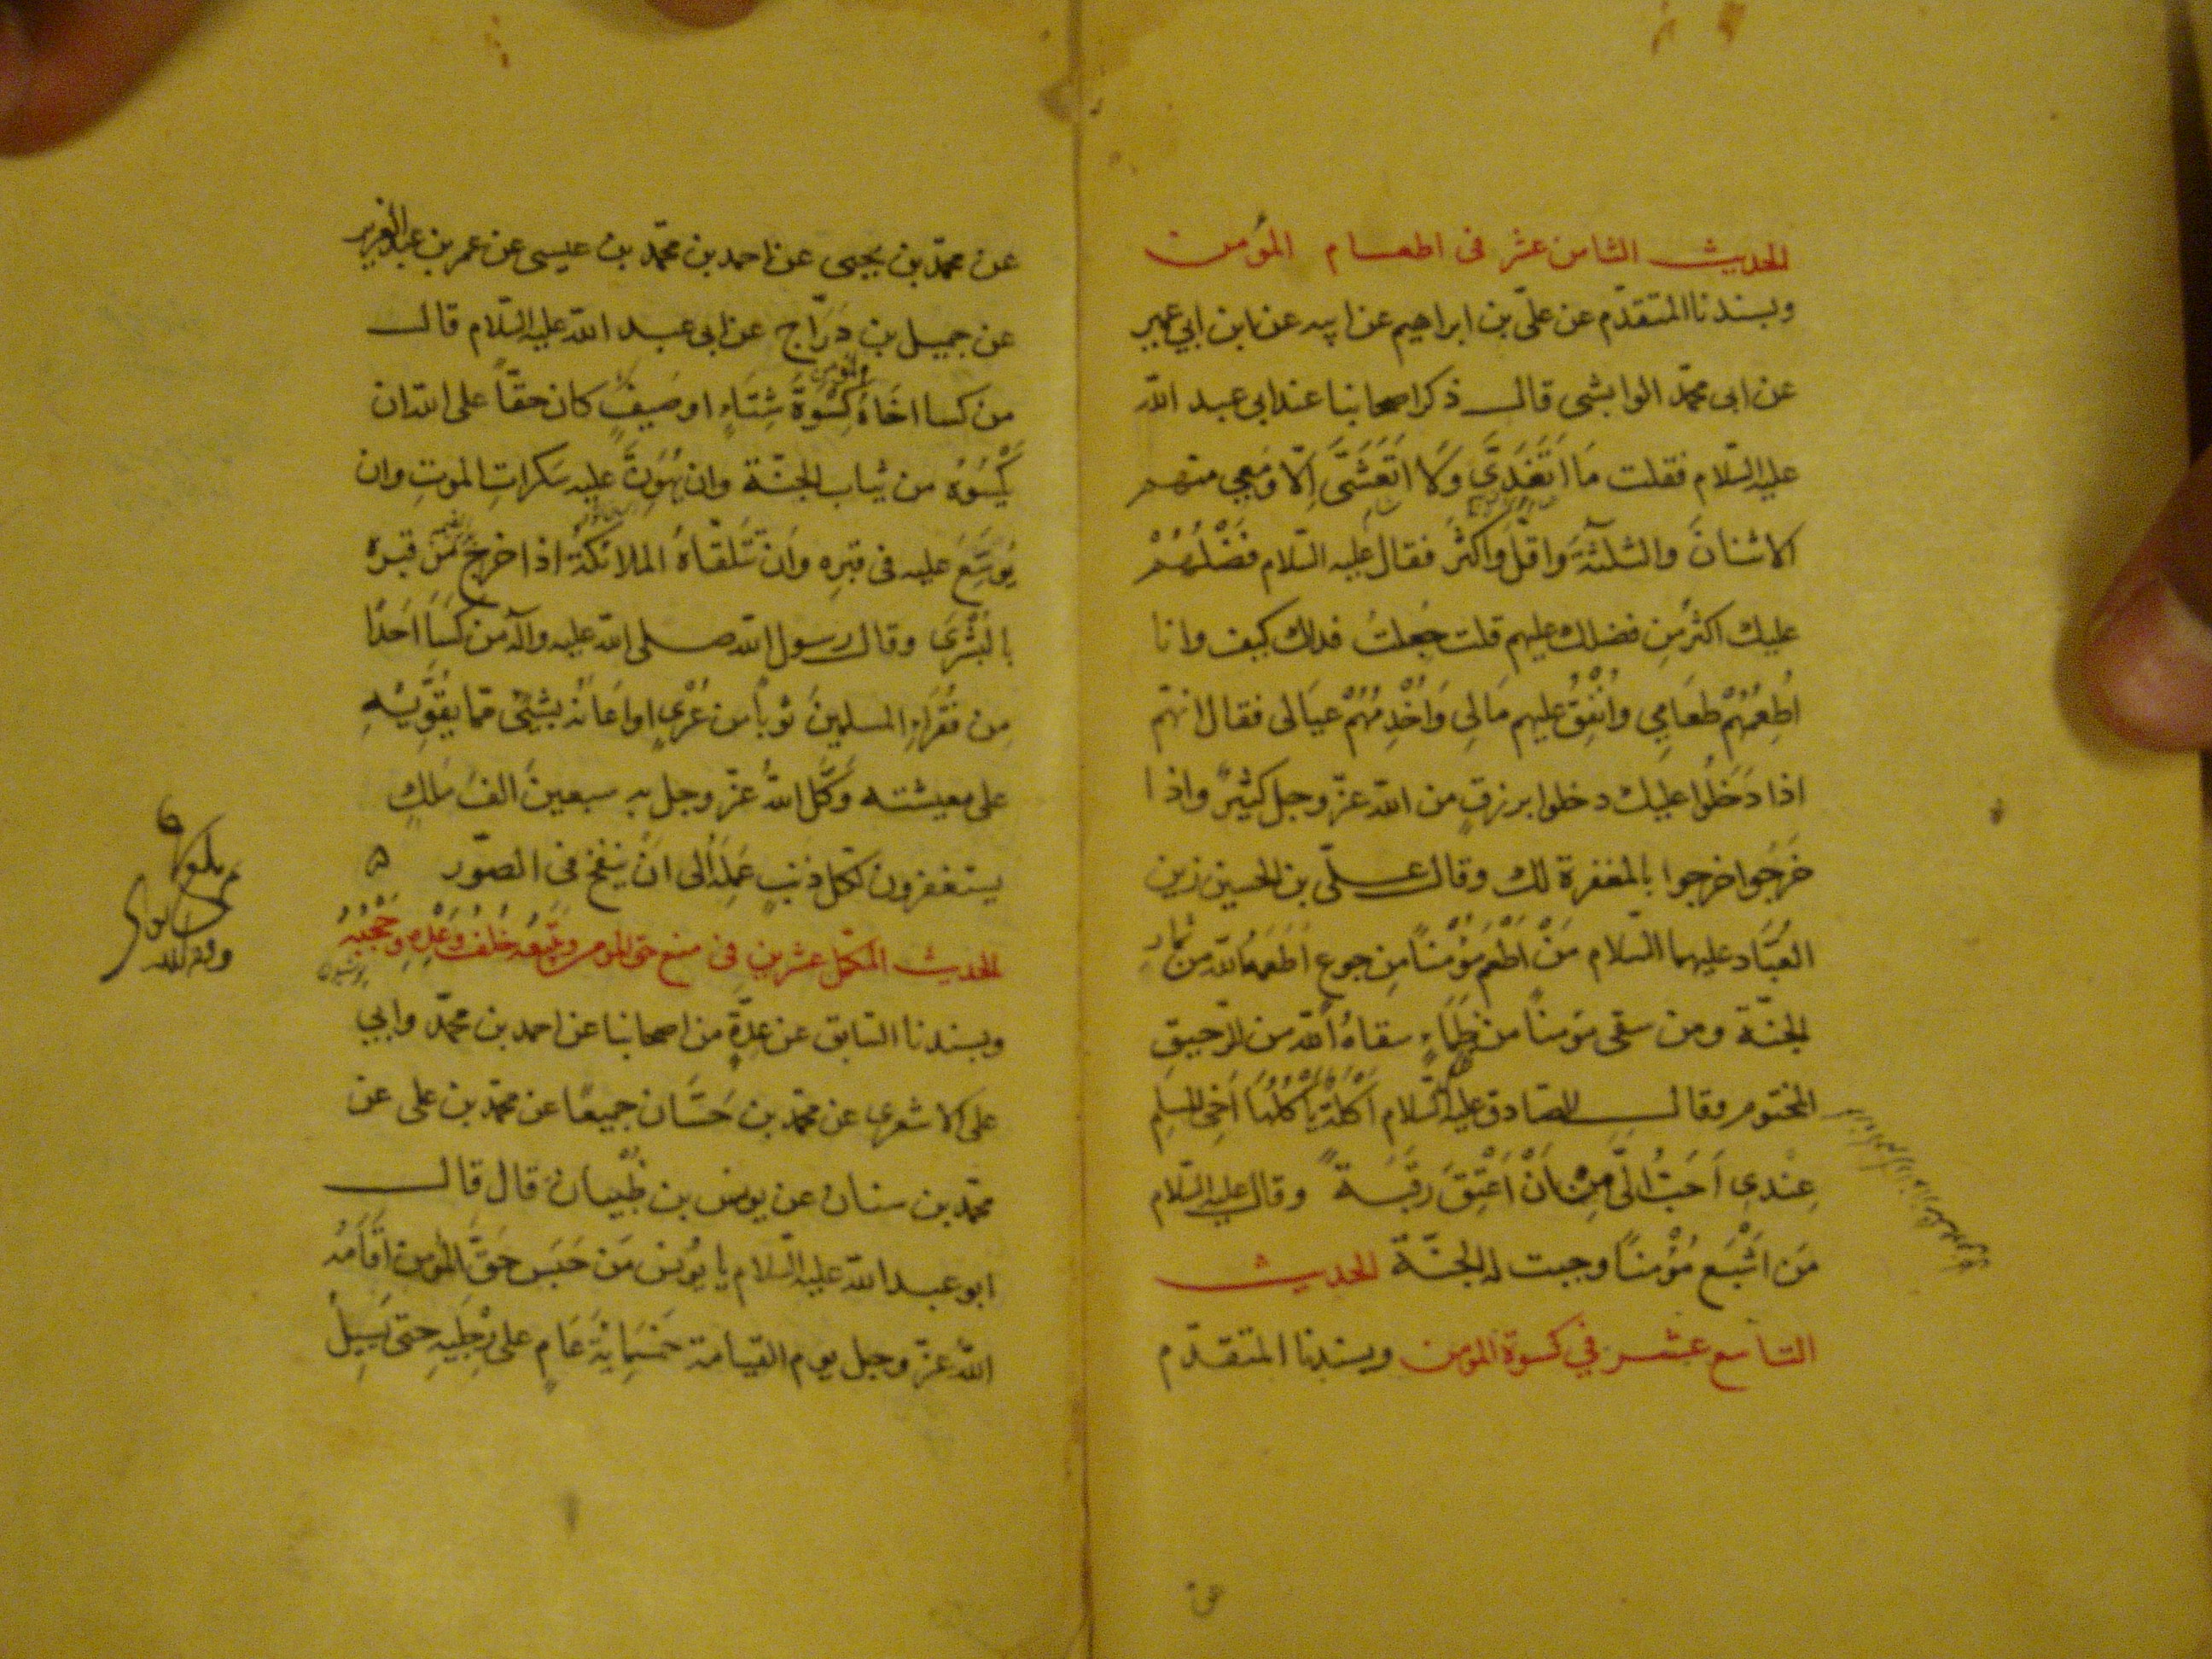 الحديث الثامن عشر فى اطعام المؤمن
وبسندنا المتقدّم عن علىّ بن ابراهيم عن ابيه عن ابن ابي عمير
عن ابى محمّد الوابشى قال ذكر اصحابنا عند ابي عبد الله
عليه السّلام فقلت مَا اَتَغَدَّى وَلَا اَتَعَشَّى اِلّا وَمَعِي منهم
الاثنان والثلثة وَاقلّ وَاكثرُ فقال عليه السّلام فَضْلُهُمْ
عليك اكثر مِن فضلك عليهم قلت جُعِلتُ فداك كيف وانا
اُطعِمُهُمْ طعَامِي واُنْفِقُ عليهم مَالِي وَاُخْدِمُهُمْ عيَالى فقال انهّم
اذا دَخَلُوا عليك دخلوا برزقٍ من الله عزّ وجل كثيرً واذا
خَرَجُوا خرجوا بالمغفرة لك وقال علىّ بن الحسين زين
العُبّاد عليهما السّلام مَنْ اَطْعَمَ مُؤْمنًا مِن جوعٍ اَطعَمَهُ الله من ثمار
الجنّة ومن سقى مؤمنًا من ظَمَاءٍ سقاهُ الله من الرّحيقِ
المختوم وقال الصّادق عليه السّلام اُكْلَةٌ يَاْكُلُهَا اَخِى المسلِم
عِنْدِى اَحَبُّ اِلَىَّ مِنْ اَنْ اَعْتِقَ رَقَبَةً وقال عليه السّلام
مَن اَشْبَعَ مُؤْمنًا وجبت له الجنّة الحديث
التاسع عشر في كسوة المؤمن وبسندنا المتقدّم
عن محمّد بن يحيى عن احمد بن محمّد بن عيسى عن عمر بن عبد العزيز
عن جميل بن دَرّاج عن ابى عبد الله عليه السّلام قال
من كسا اخَاهُ المؤمن كِسْوَةَ شِتَاءٍ او صَيفٍ كان حقّاً على الله ان
يَكْسُوَهُ من ثياب الجنّة وان يُهَوِّنَ عليه سَكراتِ الموتِ وان
يُوَسِّعَ عليه فى قبرِه وَانْ تَتَلَقّاهُ الملائكةُ اذا خرجَ مِنْ قبره
بالبُشْرَى وقال رسول الله صلى الله عليه وآله من كَسَا اَحَدًا
مِن فُقَرَاءِ المسلمينَ ثوباً من عُرْىٍ او اَعَانَهُ بشىْءٍ ممّا يَقُوِّيْهِ
على معيشته وَكَّلَ اللهُ عزّ وجل به سبعينَ الفَ مَلَكٍ
يستغفرون لكلّ ذنبٍ عَمِلَهُ الى انْ ينفخ فى الصّور ه
الحديث المكمّل عشرين فى منع حق المؤمن
وبسندنا السّابق عن عِدّةٍ من اصحابنا عن احمد بن محمّد وابي
على الاشعرى عن محمّد بن حَسَّان جميعًا عن محمّد بن على عن
محمّد بن سنان عن يونس بن ظَبْيَان قال قال
ابو عبد الله عليه السّلام يا يُونس مَن حَبَس حَقَّ المؤمن اَقَامَهُ
اللهُ عزّ وجل يوم القيامة خمسَمِايةِ عَامٍ على رِجْلَيهِ حتى يَسِيلَ